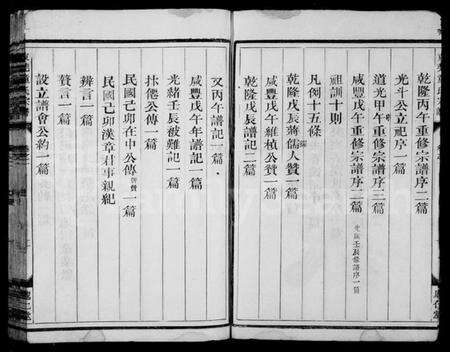 乾隆丙午重修宗譜序二篇
光斗公立祀序一篇
道光甲午重修宗譜序三篇
咸豐戊午重修宗譜序二篇
光緒壬辰修譜序一篇
祖訓十則
凡例十五條
乾隆戊辰蔣儒人贊一篇
咸豐戊午維楨公贊一篇
乾隆戊辰譜記二篇
又丙午譜記一篇
咸豐戊午年譜記一篇
光緒壬辰被難記一篇
抹倦公傳一篇
民國己卯在中公傳一篇
民國己卯漢章君事親紀
辨言一篇
贅言一篇
設立譜會公約一篇